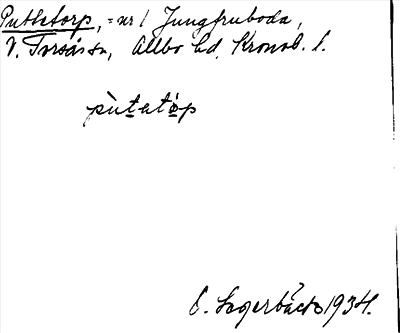 Puttetorp, = nr 1 Jungfruboda,
V. Torsås sn, Allbo hd, Kronob. l.
pùtatòp
E. Lagerbäck 1934.